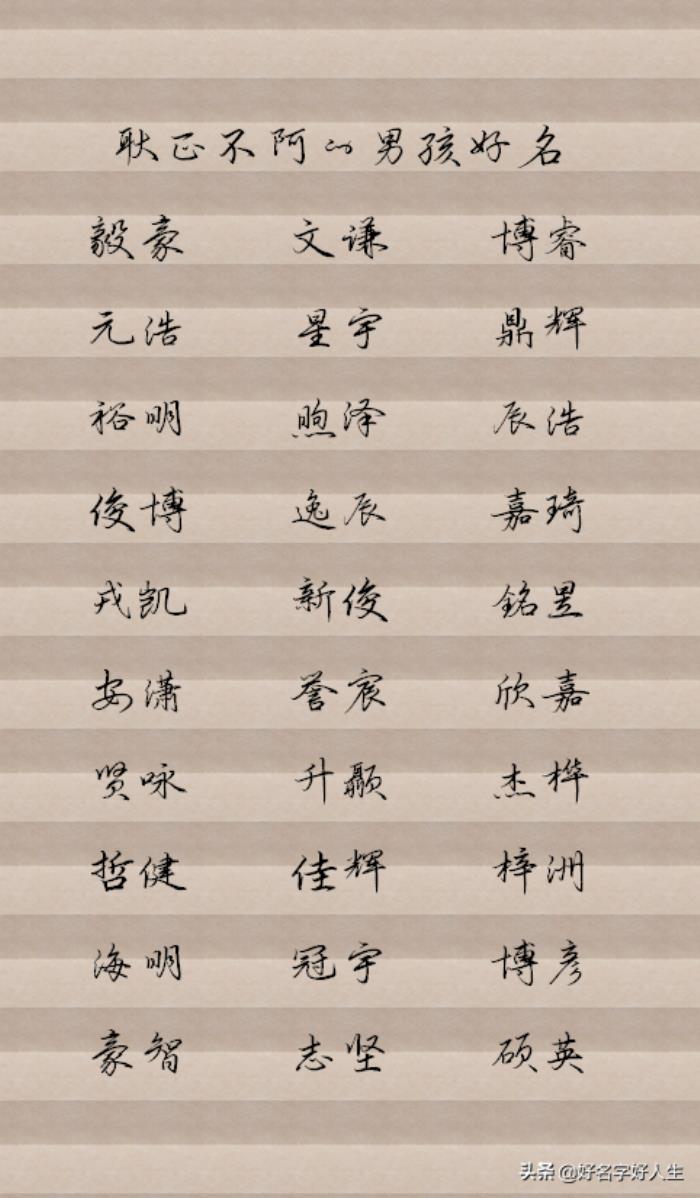 耿正不阿的男孩好名
毅豪 文谦 博睿
元浩 星宇 鼎辉
裕明 煦泽 辰浩
俊博 逸辰 嘉琦
戎凯 新俊 銘昱
安潇 誉宸 欣嘉
贤咏 升颢 杰桦
哲健 佳辉 梓洲
海明 冠宇 博彦
豪智 志坚 硕英
头条 @好名字好人生